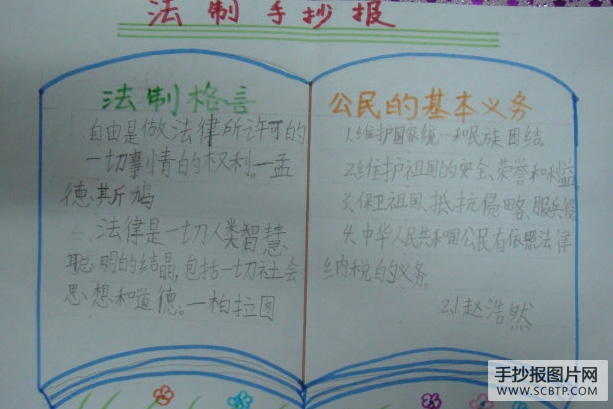 法制手抄报
法制格言
一、自由是做法律所许可的
一切事情的权利。一孟
德斯鸠
二、法律是一切人类智慧
聪明的结晶,包括一切社会
思想和道德。一柏拉图
公民的基本义务
1.维护国家统一和民族团结
2.维护祖国的安全、荣誉和利益
3.保卫祖国、抵抗侵略、服兵役
4.中华人民共和国公民有依照法律
纳税的义务。
2.1赵浩然
手抄报图片网
WWW.SCBTP.COM